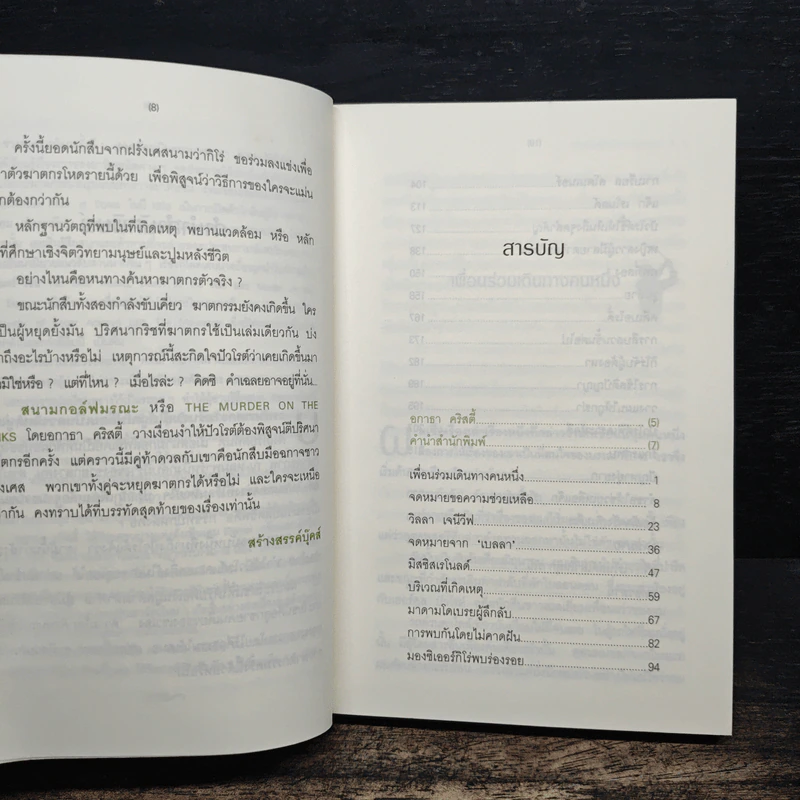 (8)
ครั้งนี้ยอดนักสืบจากฝรั่งเศสนามว่ากิโร่ ขอร่วมลงแข่งเพื่อ
าตัวฆาตกรโหดรายนี้ด้วย เพื่อพิสูจน์ว่าวิธีการของใครจะแม่น
กต้องกว่ากัน
หลักฐานวัตถุที่พบในที่เกิดเหตุ พยานแวดล้อม หรือ หลัก
ที่ศึกษาเชิงจิตวิทยามนุษย์และปูมหลังชีวิต
อย่างไหนคือหนทางค้นหาฆาตกรตัวจริง ?
ขณะนักสืบทั้งสองกำลังขับเคี่ยว ฆาตกรรมยังคงเกิดขึ้น ใคร
เป็นผู้หยุดยั้งมัน ปริศนากริชที่ฆาตกรใช้เป็นเล่มเดียวกัน บ่ง
าถึงอะไรบ้างหรือไม่ เหตุการณ์นี้สะกิดใจปัวโรต์ว่าเคยเกิดขึ้นมา
วมิใช่หรือ ? แต่ที่ไหน ? เมื่อไรล่ะ ? คิดซิ คำเฉลยอาจอยู่ที่นั่น...
สนามกอล์ฟมรณะ หรือ THE MURDER ON THE
NKS โดยอกาธา คริสตี้ วางเงื่อนงำให้ปัวโรต์ต้องพิสูจน์ตีปริศนา
าตกรอีกครั้ง แต่คราวนี้มีคู่ท้าดวลกับเขาคือนักสืบมือฉกาจชาว
งเศส พวกเขาทั้งคู่จะหยุดฆาตกรได้หรือไม่ และใครจะเหนือ
ว่ากัน คงทราบได้ที่บรรทัดสุดท้ายของเรื่องเท่านั้น
สร้างสรรค์บุ๊คส์
สารบัญ
อกาธา คริสตี้ (5)
คำนำสำนักพิมพ์ (7)
เพื่อนร่วมเดินทางคนหนึ่ง 1
จดหมายขอความช่วยเหลือ 8
วิลลา เจนีวีฟ 23
จดหมายจาก 'เบลลา' 36
มิสซิสเรโนลด์ 47
บริเวณที่เกิดเหตุ 59
มาดามโดเบรยผู้ลึกลับ 67
การพบกันโดยไม่คาดฝัน 82
มองซิเออร์กิโร่พบร่องรอย 94